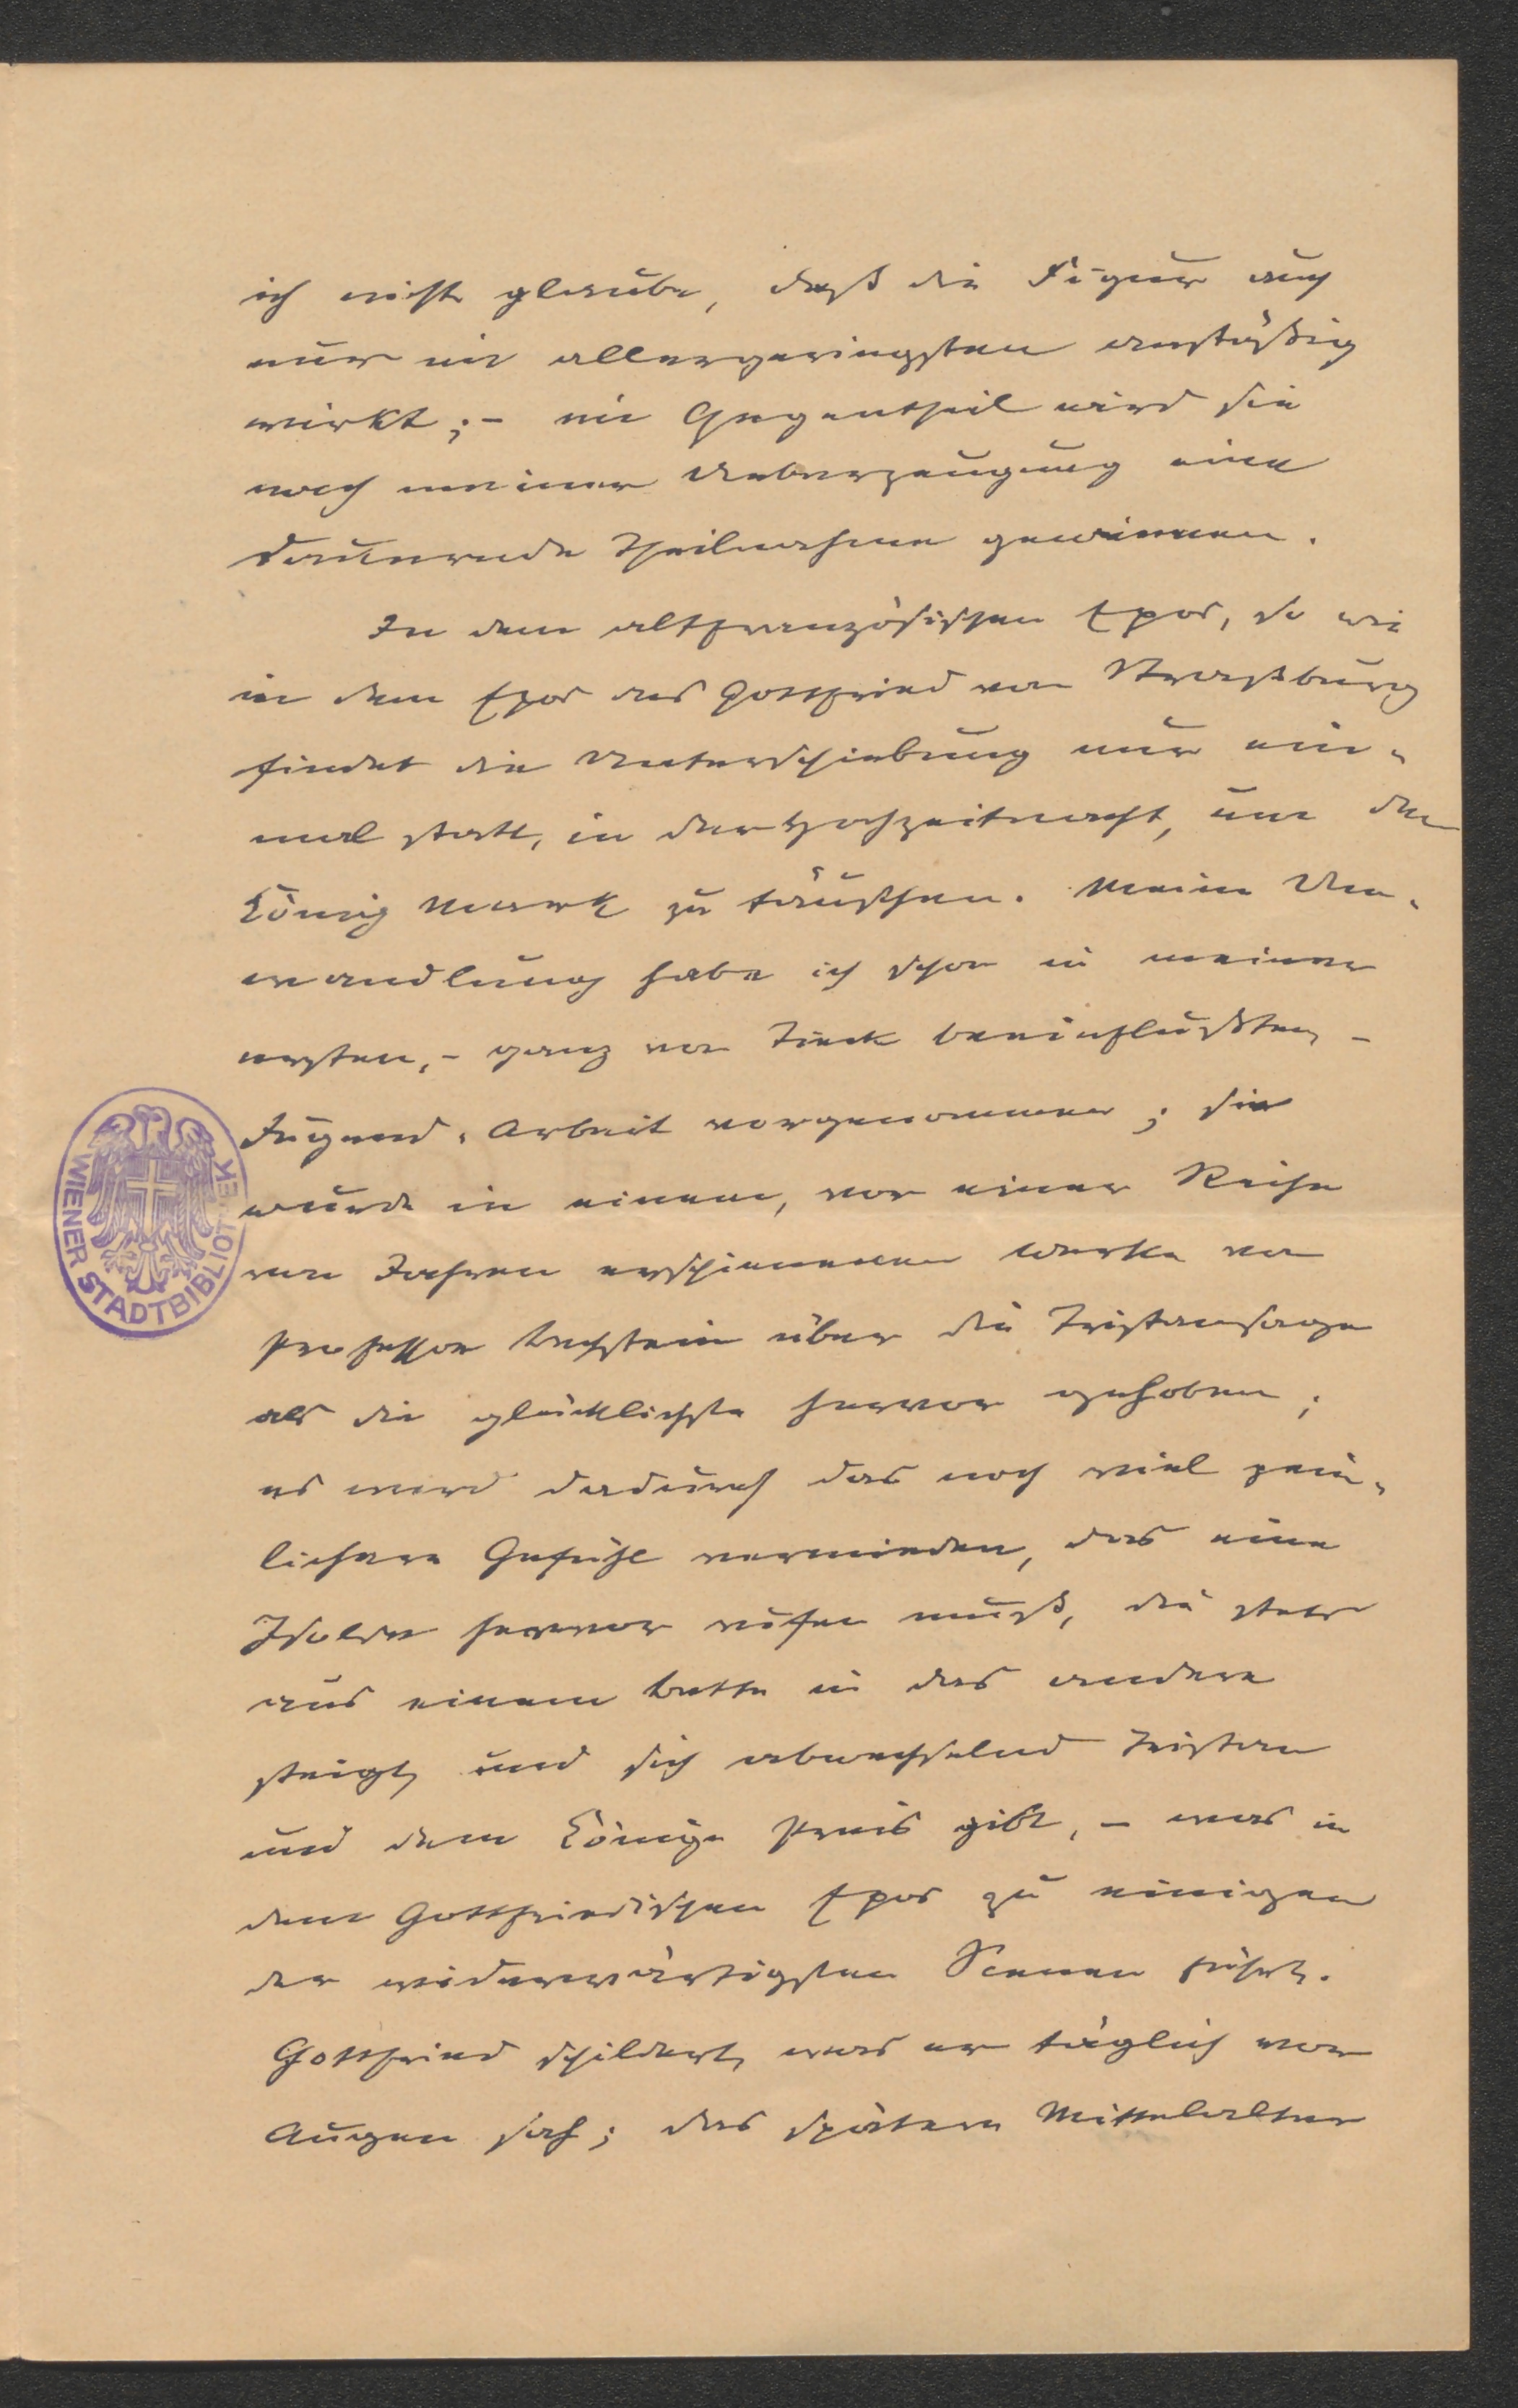 ich nicht glaube, daß die Figur auch
nur im allergeringsten anstößig
wirkt; – im Gegentheil wird sie
nach meiner Ueberzeugung eine
dauernde Theilnahme gewinnen.
In dem altfranzösischen Epos, so wie
in dem Epos des Gottfried von Straßburg
findet die Unterschiebung nur ein-
mal statt, in der Hochzeitnacht, um den
König Mark zu täuschen. Meine Um-
wandlung habe ich schon in meiner
ersten, – ganz von Tieck beeinflußten –
Jugend-Arbeit vorgenommen; sie
wurde in einem, vor einer Reihe
von Jahren erschienenen Werke von
Professor Bechstein über die Tristansage
als die glücklichste hervor gehoben;
es wird dadurch das noch viel pein-
lichere Gefühl vermieden, das eine
Isolde hervor rufen muß, die stets
aus einem Bette in das andere
steigt, und sich abwechselnd Tristan
und dem Könige Preis gibt, – was in
dem Gottfriedischen Epos zu einigen
der widerwärtigsten Scenen führt.
Gottfried schildert, was er täglich vor
Augen sah; das spätere Mittelalter
WIENER STADTBIBLIOTHEK